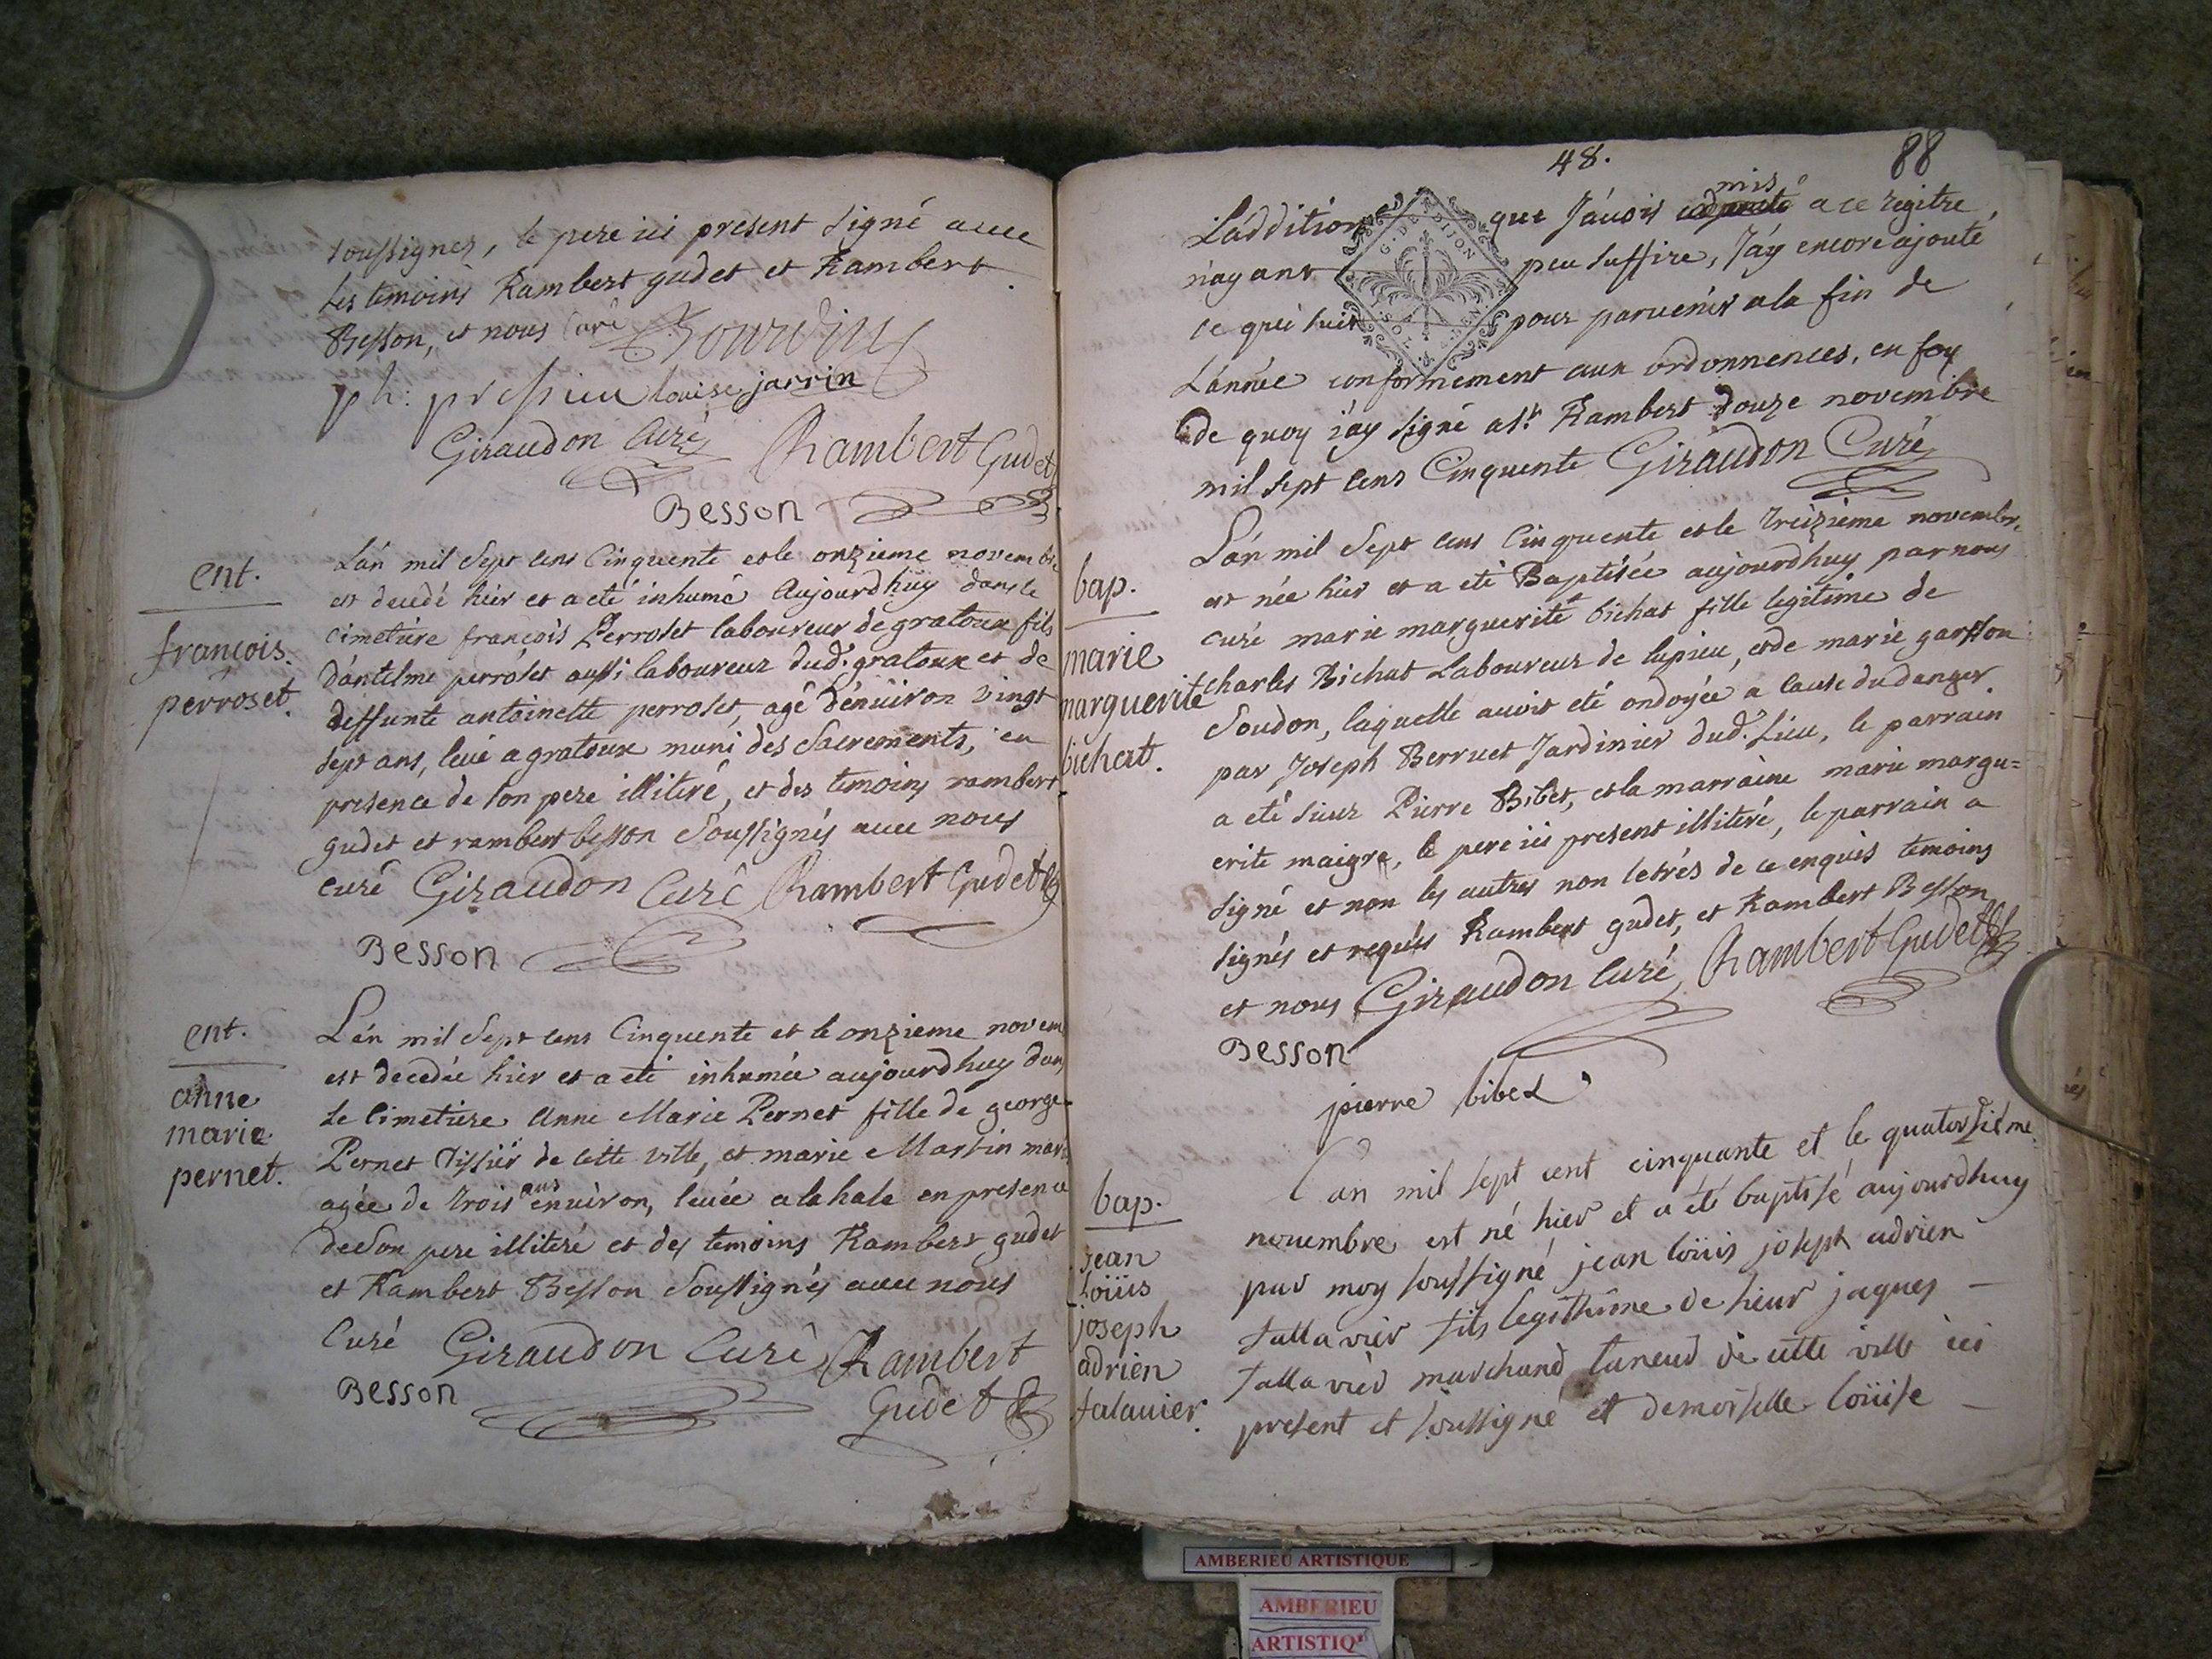 soussignes, le pere ici present signé avec
les temoins Rambert gudet et Rambert
Besson, et nous Curé Bourdin
ph: pressieu Louise jarrin
Giraudon Curé Rambert Gudet
Besson
ent.
françois
perroset.
L'án mil sept cens Cinquente et le onzieme novembre
est decedé hier et a eté inhumé Aujourdhüy dans le
cimetiere françois Perroset laboureur de gratoux fils
d'antelme perroset aussi laboureur dud. gratoux et de
deffunte antoinette perroset, agé d'enuiron vingt
sept ans, leué a gratoux muni des Sacrements, en
presence de son pere illiteré, et des temoins rambert
gudet et rambert besson Soussignés auec nous
curé Giraudon Curé Rambert Gudet
Besson
ent.
anne
marie
pernet.
L'án mil Sept cens Cinquente et le onzieme novem
est decedée hier et a eté inhumée aujourdhuy dans
le Cimetiere Anne Marie Pernet fille de george
Pernet Tissier de cette ville, et marie Martin mari
agée de trois ans enuiron, leuée a la hale en presence
de Son pere illiteré et des temoins Rambert gudet
et Rambert Besson Soussignés auec nous
Curé Giraudon Curé Rambert
Besson Gudet
48. 88
L'addition que J'auois mis a ce regitre
n'ayant G. DE DIJON peu suffire, J'ay encore ajouté
ce qui suit pour paruenir a la fin de
L'année conformement aux ordonnences, en foy
de quoy j'ay signé a St. Rambert Douze novembre
mil sept cens Cinquente Giraudon Curé
bap.
marie
marguerite
bichat.
L'án mil Sept cens Cinquente et le treizieme novembre
est née hier et a eté Baptisée aujourdhuy par nous
curé marie marguerite bichat fille legitime de
charles Bichat Laboureur de lupieu, et de marie garsson
Soudon, laquelle auoit eté ondoyée a cause du danger
par Joseph Berruet Jardinier dud. Lieu, le parrain
a eté sieur Pierre Bibet, et la marraine marie margu=
erite maigre, le pere ici present illiteré, le parrain a
signé et non les autres non letrés de ce enquis temoins
signés et requis Rambert gudet, et Rambert Besson
et nous Giraudon Curé, Rambert Gudet
Besson
pierre bibet
bap.
jean
Loüis
joseph
adrien
talauier.
L'an mil sept cent cinquante et le quatorsieme
nouembre est né hier et a eté baptisé aujourdhuy
par moy soussigné jean loüis joseph adrien
tallavier fils legithime de sieur jaques
tallavier marchand taneur de cette ville ici
present et soussigné et demoiselle loüise
AMBERIEU ARTISTIQUE
AMBERIEU
ARTISTIQ